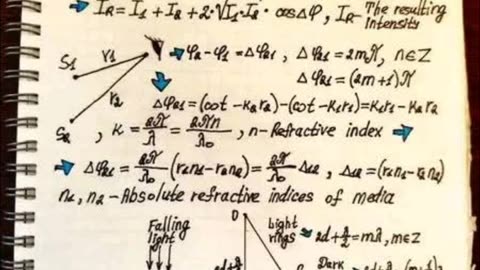 → I_R = I_1 + I_2 + 2·√I_1·I_2 · cosΔφ, I_R - The resulting
intensity
S_1 r_1 ⇒ φ_2 - φ_1 = Δφ_21, Δφ_21 = 2mπ, n∈Z
Δφ_21 = (2m+1)π
r_2
S_2
Δφ_21 = (ωt - k_2r_2) - (ωt - k_1r_1) = k_1r_1 - k_2r_2
, k = 2π/λ = 2πn/λ_0, n - Refractive index ⇒
⇒ Δφ_21 = 2π/λ_0 (r_1n_1 - r_2n_2) = 2π/λ_0 · Δ_12, Δ_12 = (r_1n_1 - r_2n_2)
n_1, n_2 - Absolute refractive indices of media
Falling
light
O
Light
rings
⇒ 2d + λ/2 = mλ, m∈Z
Dark